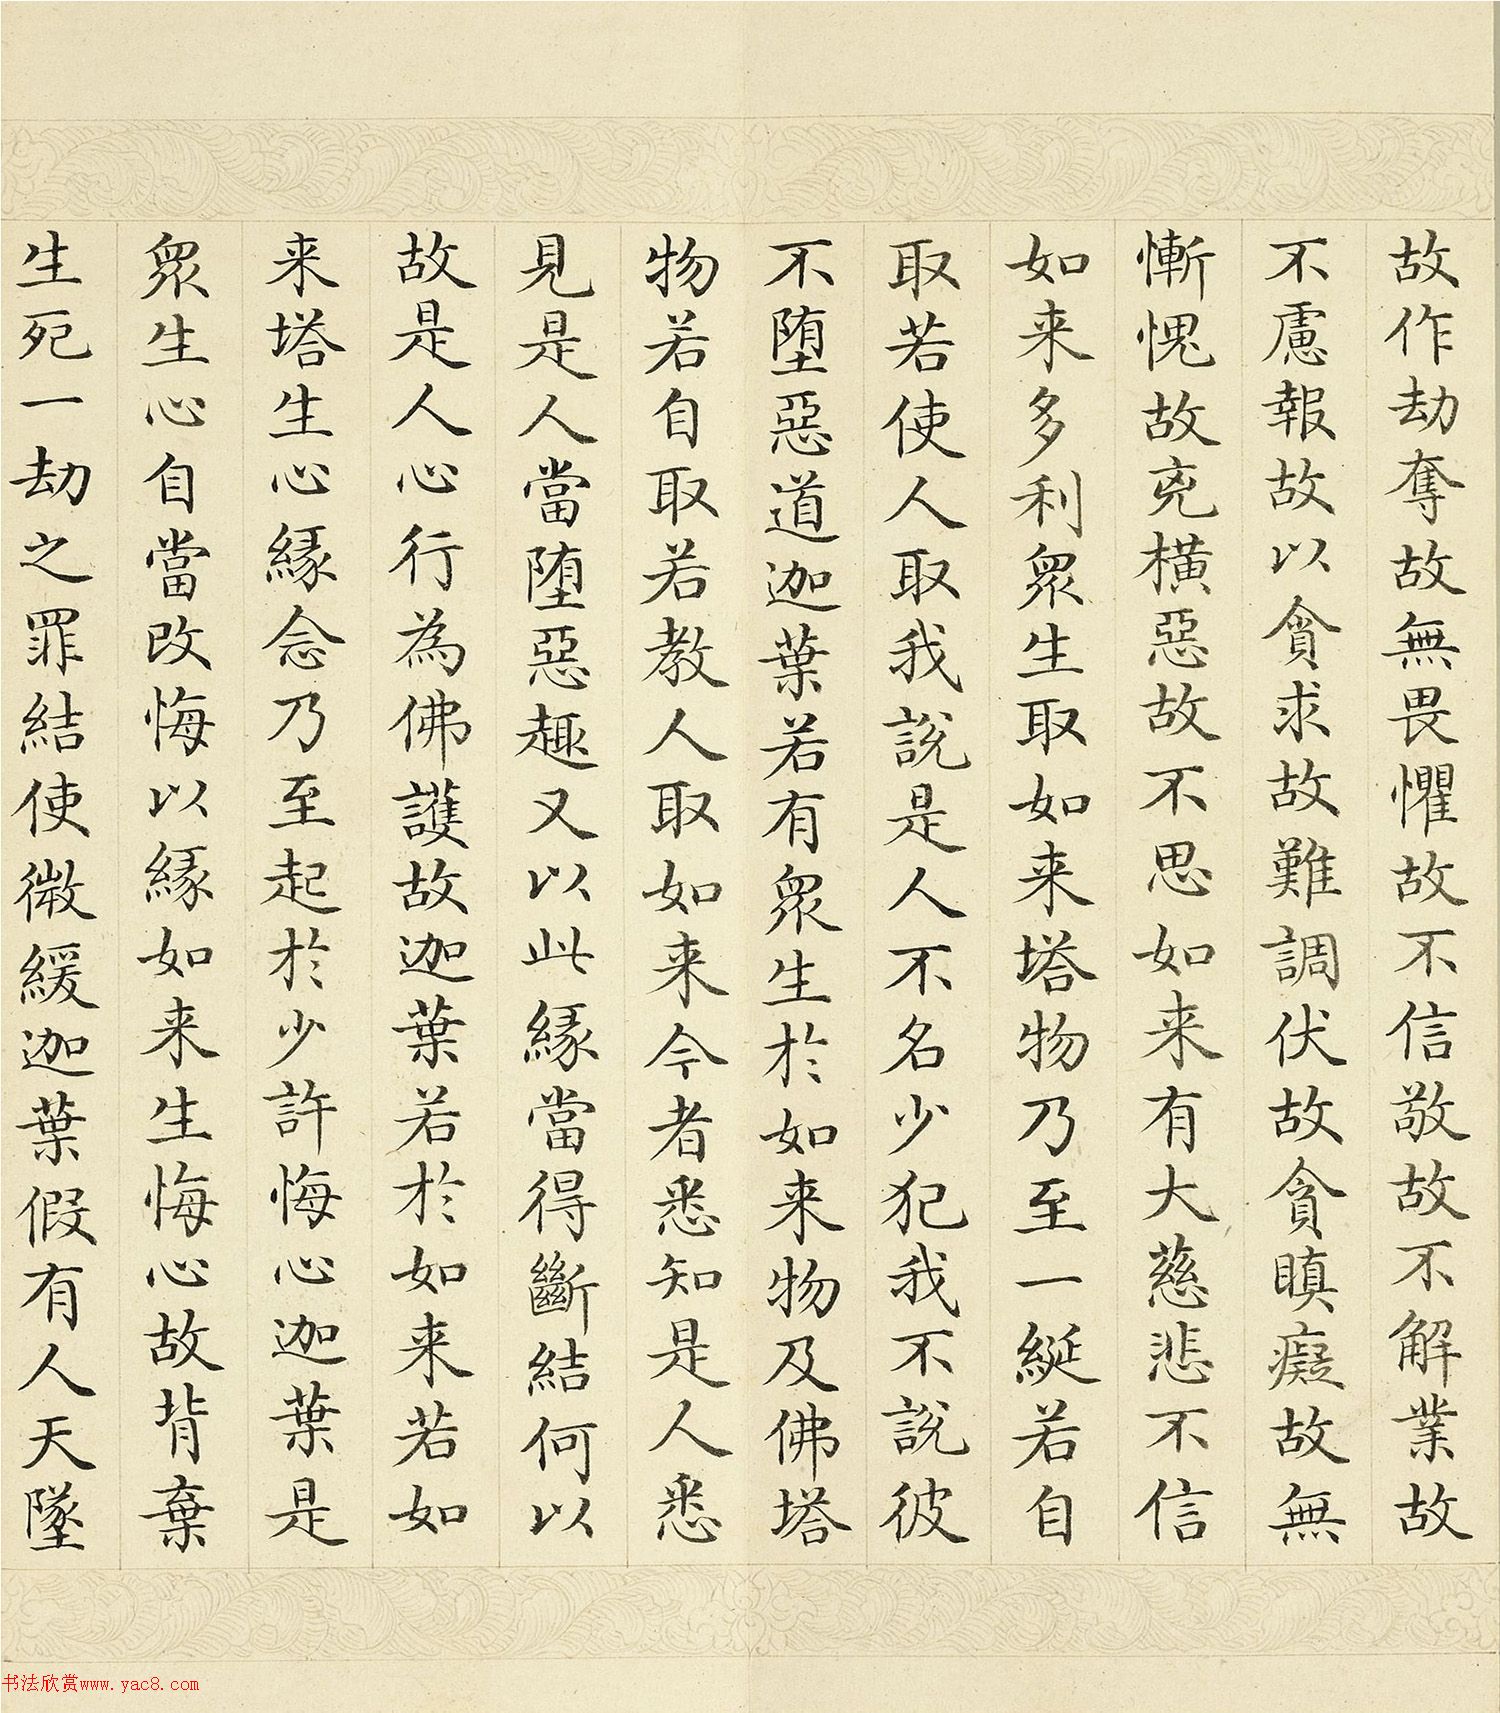 故作劫奪故無畏懼故不信敬故不解業故
不慮報故以貪求故難調伏故貪瞋癡故無
慚愧故兇橫惡故不思如来有大慈悲不信
如来多利衆生取如来塔物乃至一綖若自
取若使人取我說是人不名少犯我不說彼
不堕惡道迦葉若有衆生於如来物及佛塔
物若自取若教人取如来今者悉知是人悉
見是人當堕惡趣又以此緣當得斷結何以
故是人心行為佛護故迦葉若於如来若如
来塔生心緣念乃至起於少許悔心迦葉是
衆生心自當改悔以緣如来生悔心故背棄
生死一劫之罪結使微緩迦葉假有人天墜
书法欣赏www.yac8.com